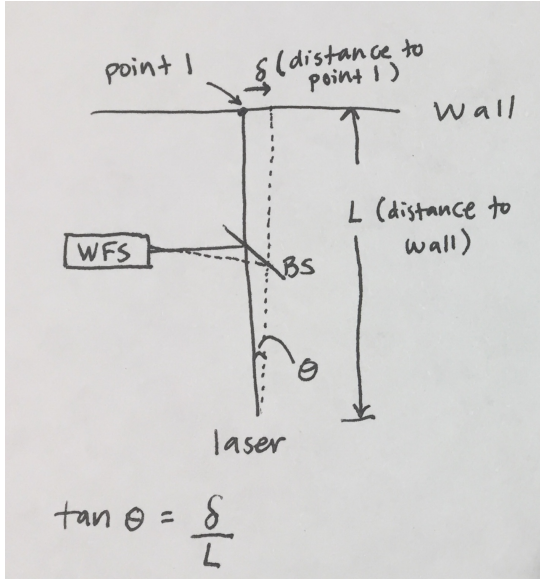 point 1
δ (distance to
point 1)
Wall
L (distance to
wall)
WFS
BS
θ
laser
tan θ = δ
L